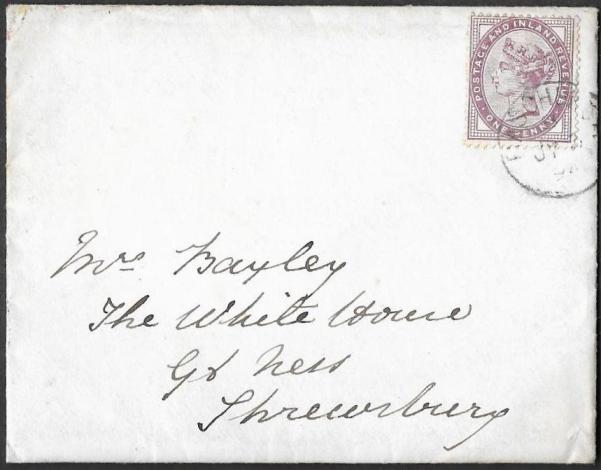 POSTAGE AND INLAND REVENUE
ONE PENNY
Mrs Bayley
The White House
Gt Ness
Shrewsbury